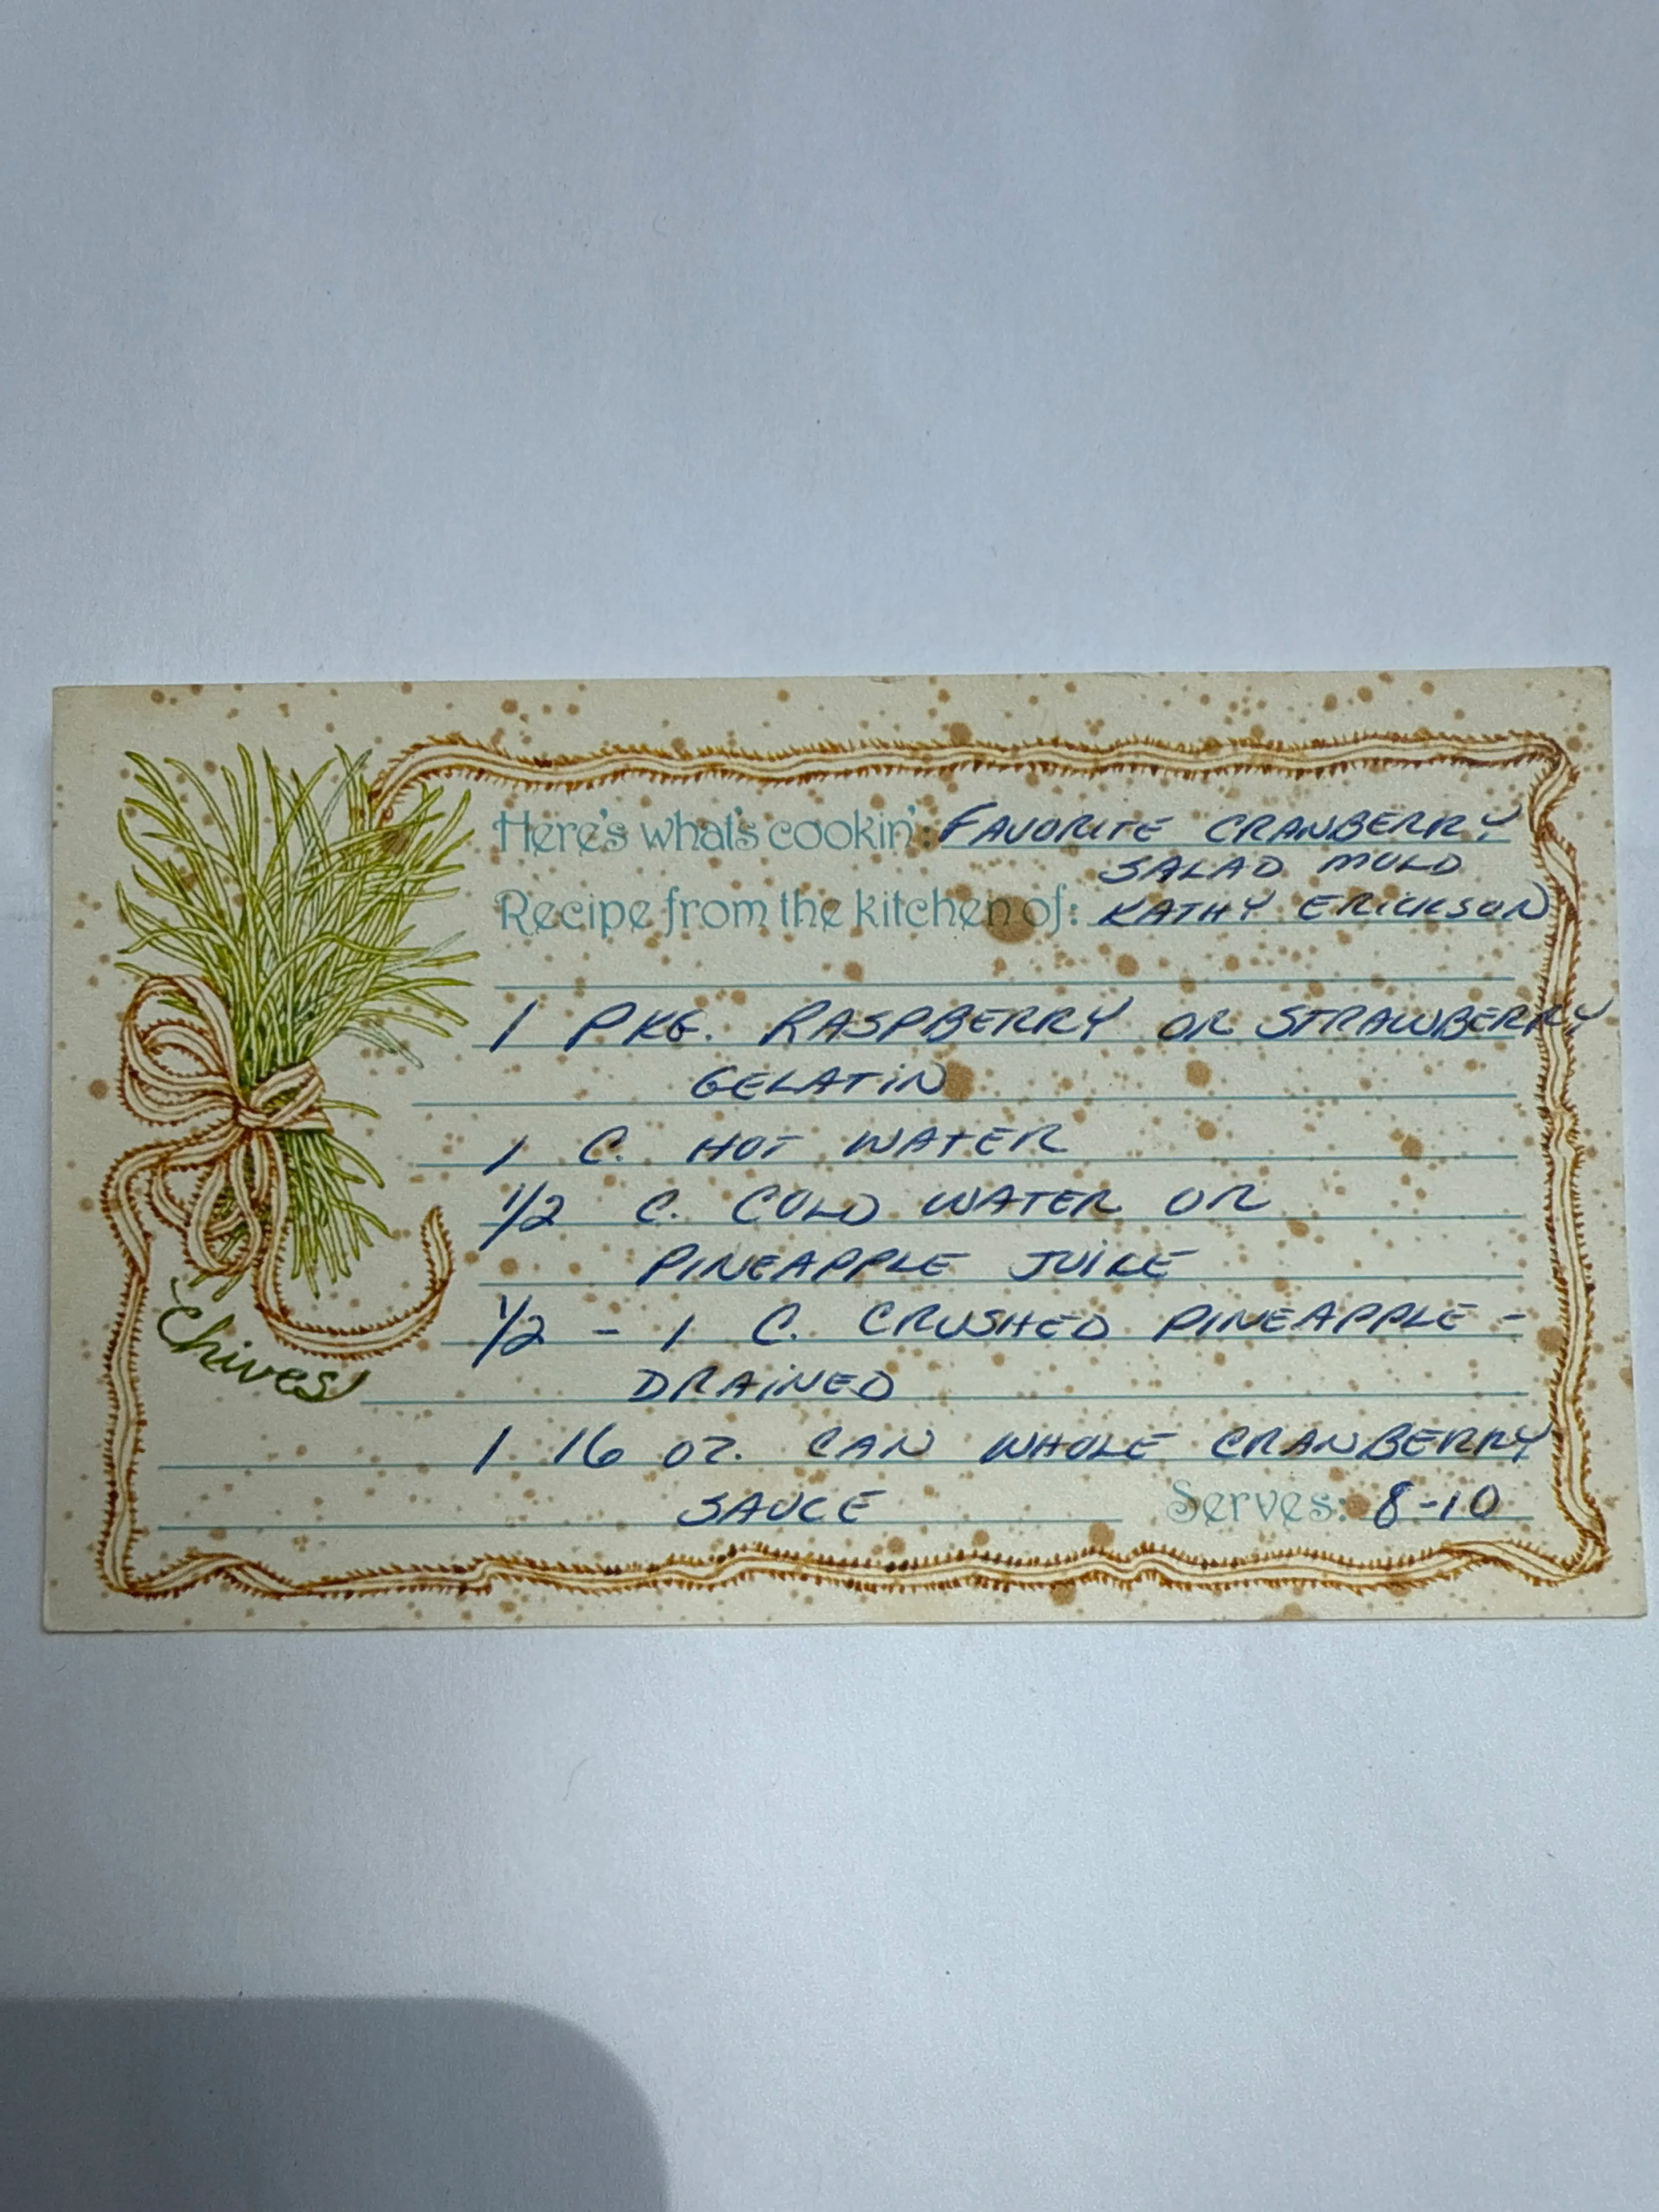 Here's what's cookin': FAVORITE CRANBERRY
SALAD MOLD
Recipe from the kitchen of: KATHY ERICKSON
1 PKG. RASPBERRY OR STRAWBERRY
GELATIN
1 C. HOT WATER
1/2 C. COLD WATER OR
PINEAPPLE JUICE
1/2 - 1 C. CRUSHED PINEAPPLE -
DRAINED
Chives
1 16 OZ. CAN WHOLE CRANBERRY
SAUCE Serves: 8-10